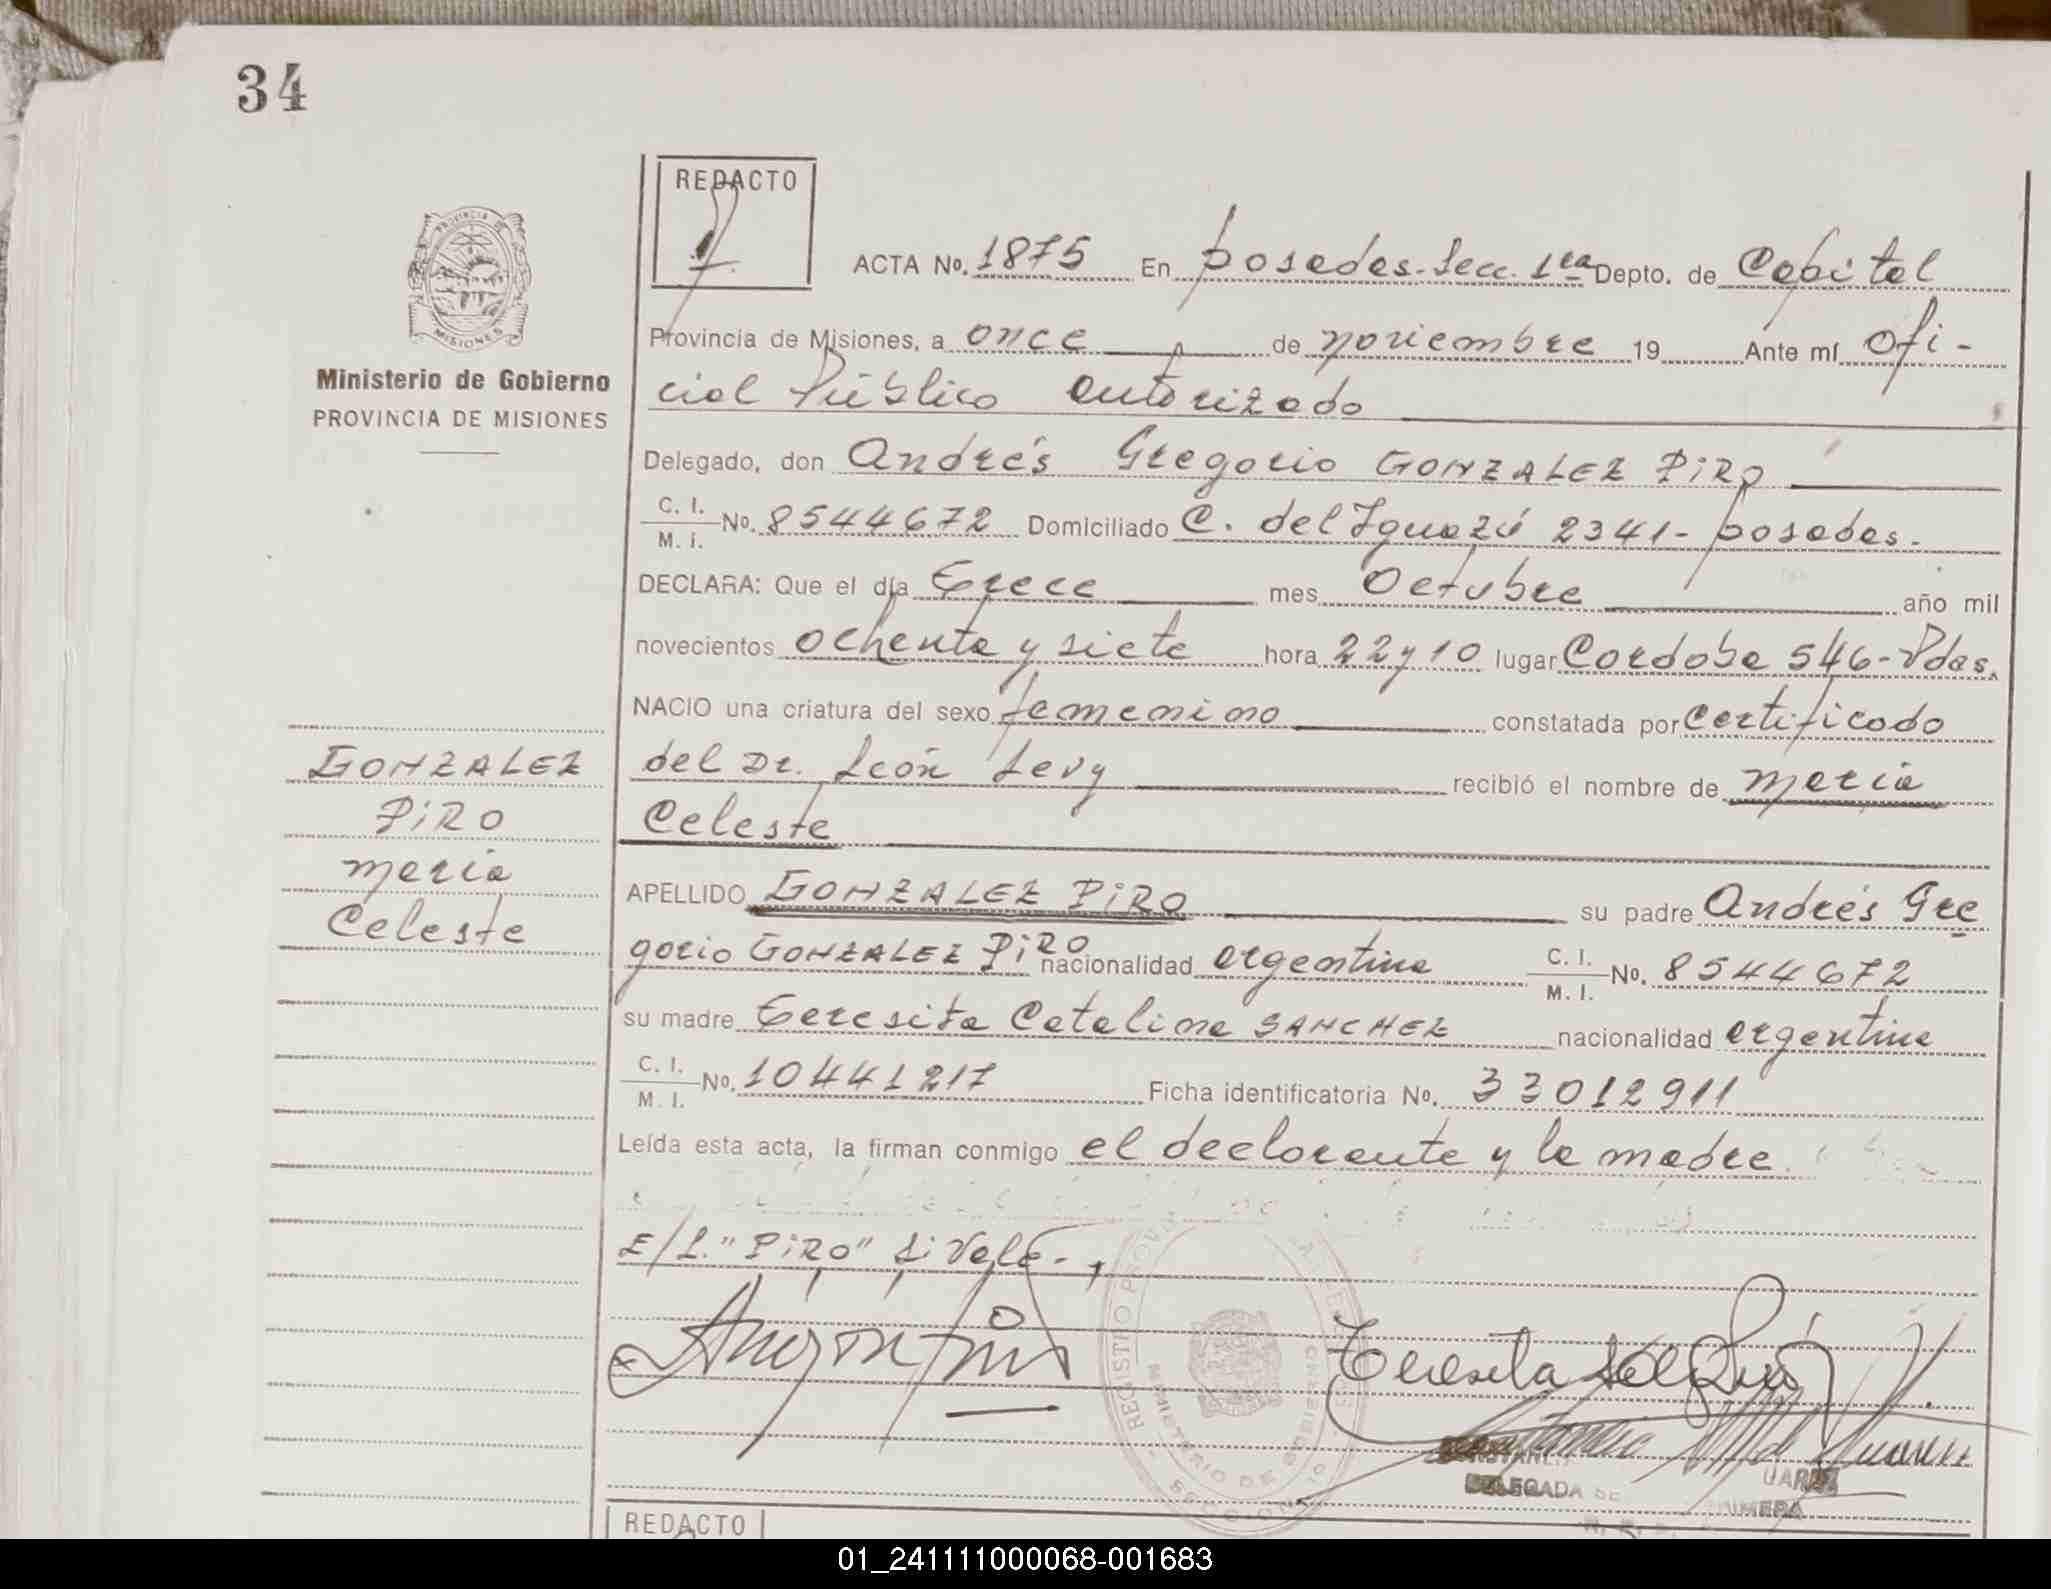 34
REDACTO
PROVINCIA DE
MISIONES
Ministerio de Gobierno
PROVINCIA DE MISIONES
ACTA No. 1875 En posadas-Secc. 1ra Depto. de Capital
Provincia de Misiones, a once de noviembre 19 Ante mí Ofi-
cial Público autorizado
Delegado, don Andrés Gregorio GONZALEZ PiRO
C. I.
M. i. No. 8544672 Domiciliado C. del Iguazú 2341- posadas.
DECLARA: Que el día trece mes Octubre año mil
novecientos ochenta y siete hora 22 y 10 lugar Cordoba 546-Pdas.
NACIO una criatura del sexo femenino constatada por certificado
del Dr. León Levy recibió el nombre de maria
Celeste
GONZALEZ
PiRO
maria
Celeste
APELLIDO GONZALEZ PiRO su padre Andrés Gre
gorio GONZALEZ PiRO nacionalidad argentina C. I.
M. I. No. 8544672
su madre teresita Catalina SANCHEZ nacionalidad argentina
C. I.
M. I. No. 10441217 Ficha identificatoria No. 33012911
Leída esta acta, la firman conmigo el declarante y la madre.
E/L. "PiRO" si vale.-
REGISTRO
MINISTERIO DE GOBIERNO
DELEGADA DE PRIMERA
REDACTO
01_241111000068-001683